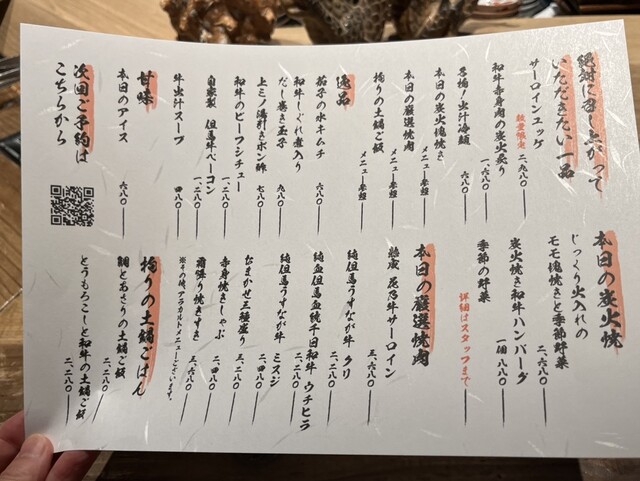 絶対に召し上がって
いただきたい一品
サーロインユッケ
数量限定
二、九八〇
和牛赤身肉の炭火炙り
一、六八〇
名物！出汁冷麺
六八〇
本日の炭火塊焼き
メニュー参照
本日の厳選焼肉
メニュー参照
拘りの土鍋ご飯
メニュー参照
逸品
茄子の水キムチ
六八〇
和牛しぐれ煮入り
だし巻き玉子
九八〇
上ミノ湯引きポン酢
七八〇
和牛のビーフシチュー
一、二八〇
自家製 但馬牛ベーコン
一、二八〇
牛出汁スープ
四八〇
甘味
本日のアイス
六八〇
次回ご予約は
こちらから
本日の炭火焼
じっくり火入れの
モモ塊焼きと季節野菜
二、六八〇
炭火焼き和牛ハンバーグ
一個 八八〇
季節の野菜
詳細はスタッフまで
本日の厳選焼肉
熟成 花乃牛サーロイン
三、六八〇
純但馬うすなが牛 クリ
二、二八〇
純血但馬血統千日和牛 ウチヒラ
二、二八〇
純但馬うすなが牛 ミスジ
二、四八〇
おまかせ三種盛り
三、二八〇
赤身焼きしゃぶ
二、四八〇
霜降り焼きすき
三、二八〇
※その他、アラカルトメニューございます。
拘りの土鍋ごはん
鯛とあさりの土鍋ご飯
二、二八〇
とうもろこしと和牛の土鍋ご飯
二、二八〇